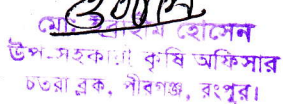 মোঃ ইব্রাহীম হোসেন
উপ-সহকারী কৃষি অফিসার
চতরা ব্লক, পীরগঞ্জ, রংপুর।